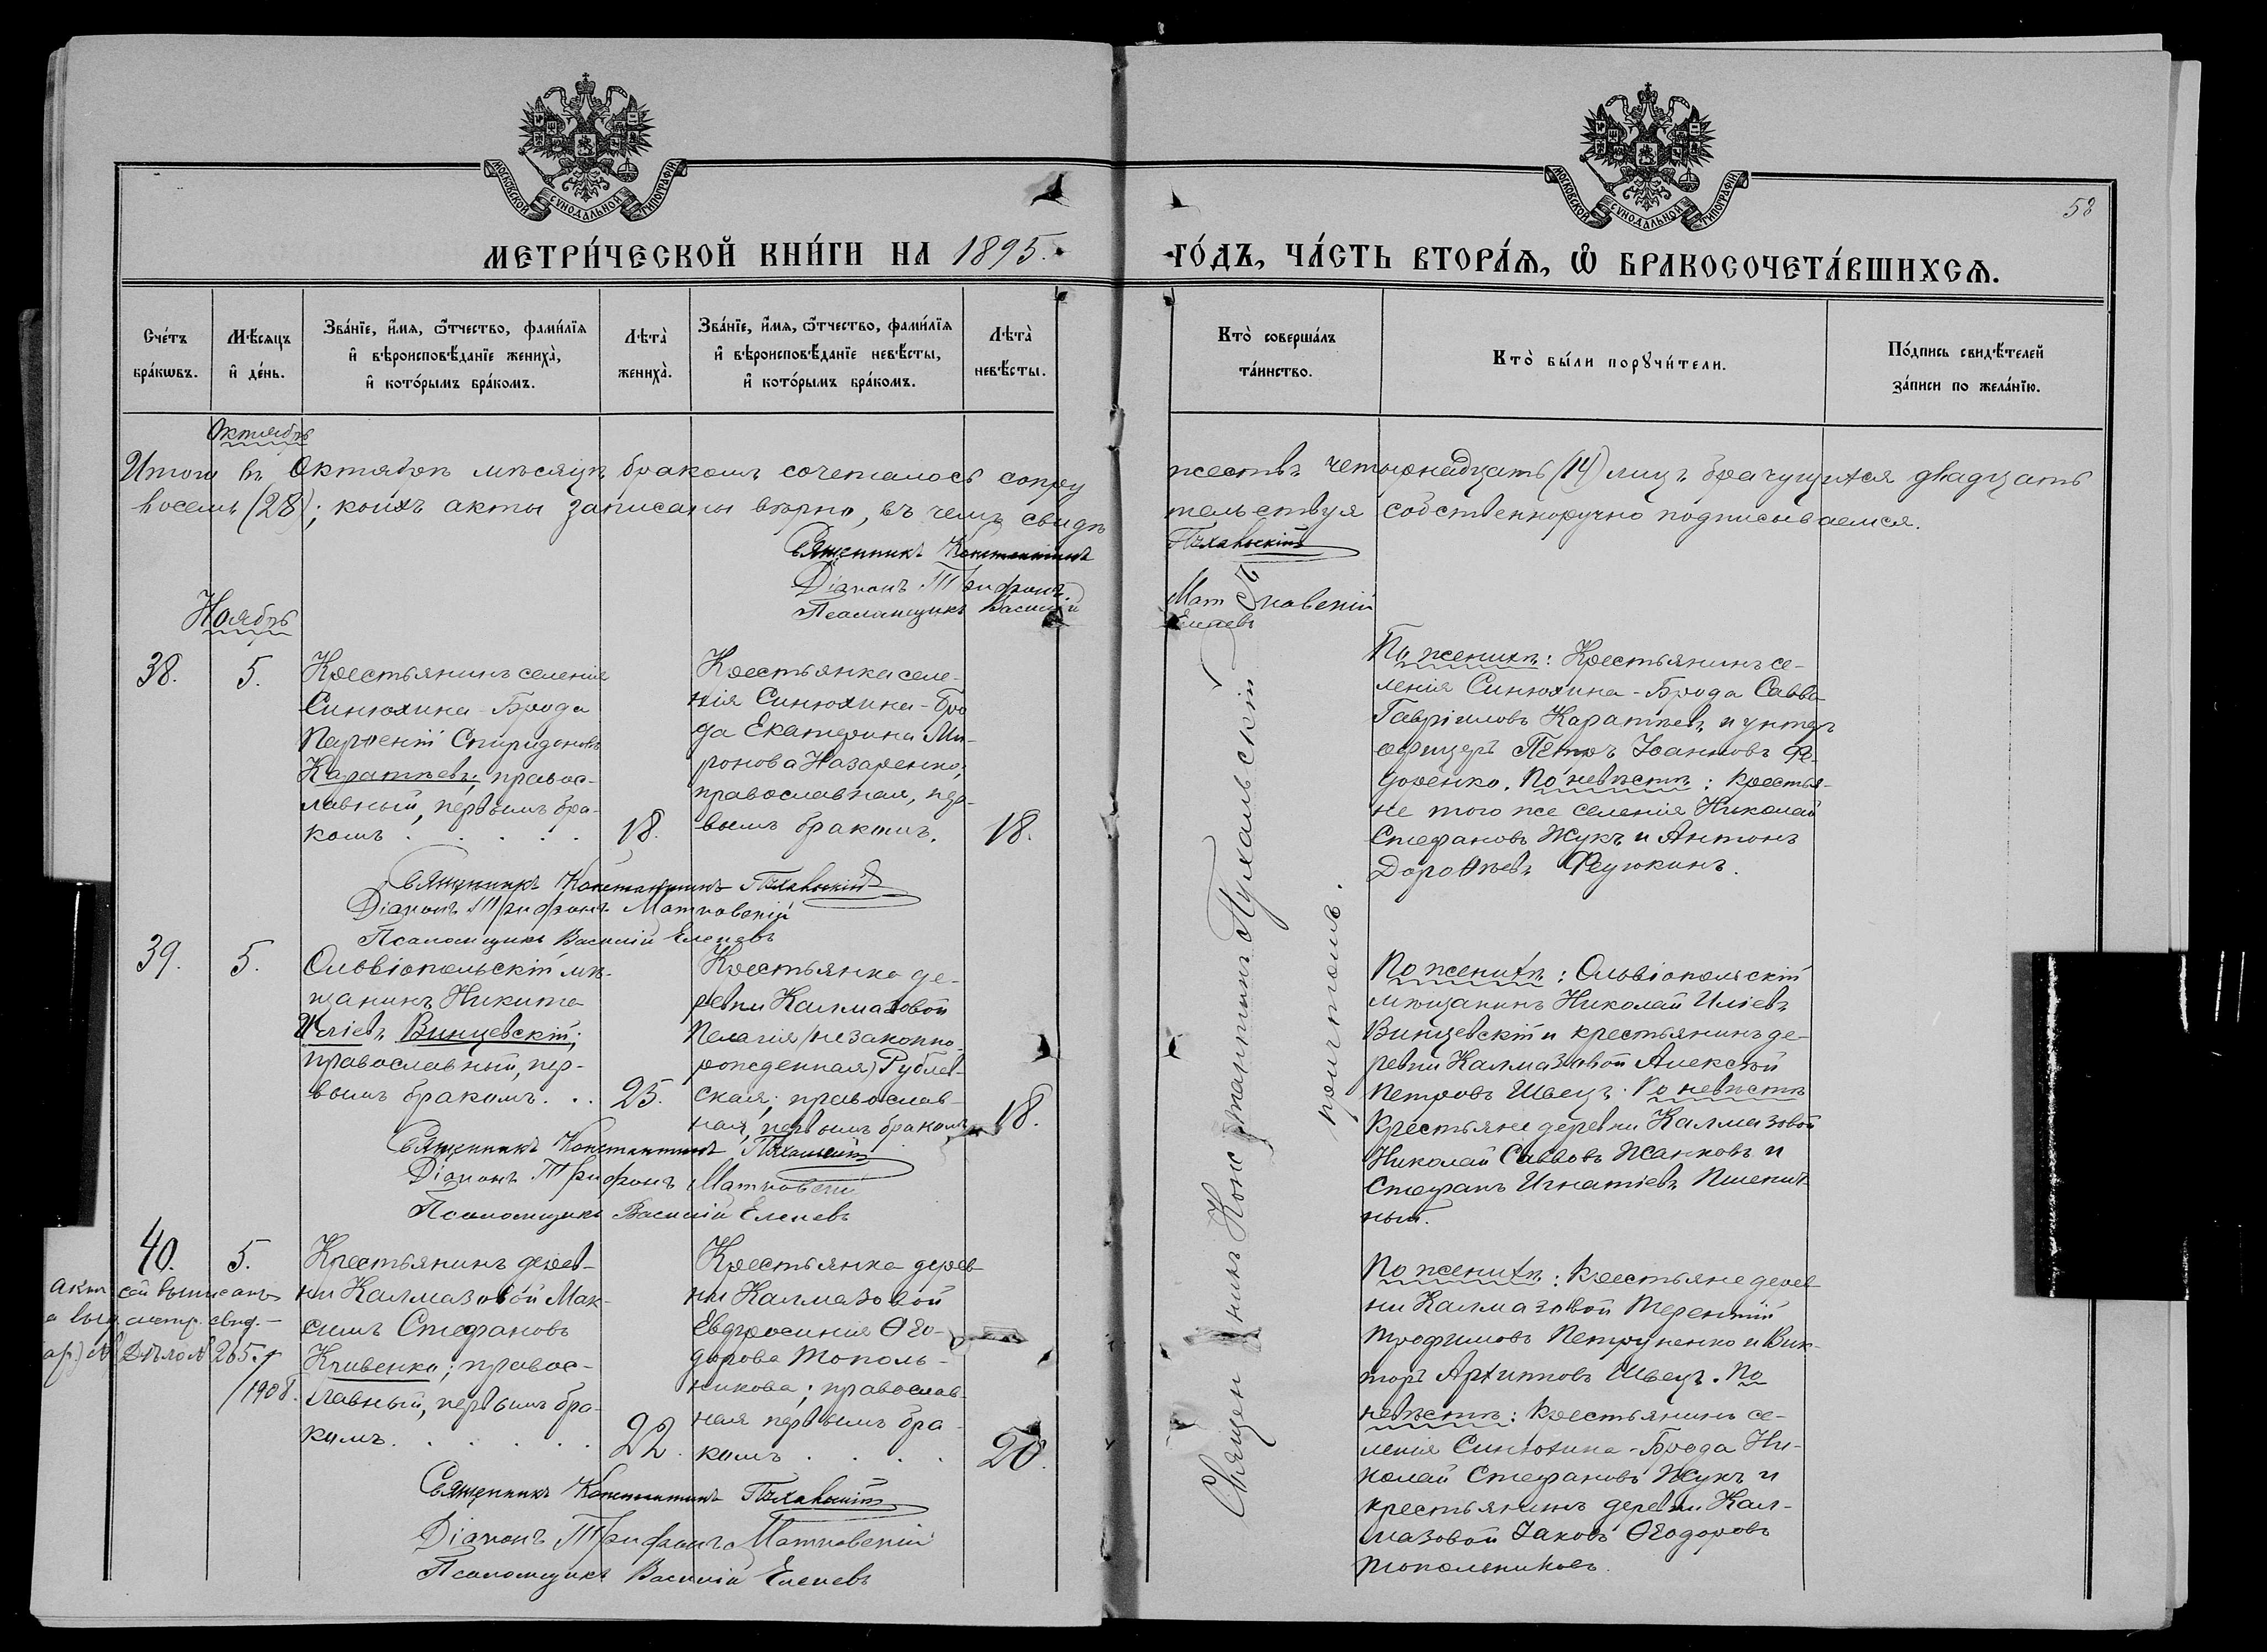 МОСКОВСКОЙ СѴНОДАЛЬНОЙ ТИПОГРАФІИ
МОСКОВСКОЙ СѴНОДАЛЬНОЙ ТИПОГРАФІИ
58
МЕТРИ́ЧЕСКОЙ КНИ́ГИ НА 1895. ГО́ДЪ, ЧА́СТЬ ВТОРА́Ѧ, Ѽ БРАКОСОЧЕТА́ВШИХСѦ.
Сче́тъ
бра́кѡвъ.
Мѣ́сяцъ
и҆ де́нь.
Зва́нїе, и҆́мѧ, ѻ҆́тчество, фами́лїѧ
и҆ вѣроисповѣ́данїе жениха̀,
и҆ кото́рымъ бра́комъ.
Лѣта̀
жениха̀.
Зва́нїе, и҆́мѧ, ѻ҆́тчество, фами́лїѧ
и҆ вѣроисповѣ́данїе невѣ́сты,
и҆ кото́рымъ бра́комъ.
Лѣта̀
невѣ́сты.
Кто̀ соверша́лъ
та́инство.
Кто̀ бы́ли порꙋчи́тели.
По́дпись свидѣ́телей
за́писи по жела́нїю.
Октябрь
Итого въ Октябрѣ мѣсяцѣ бракомъ сочеталось супру
жествъ четырнадцать (14) лицъ брачущихся двадцать
восемь (28); коихъ акты записаны вѣрно, въ чемъ свидѣ
тельствуя собственноручно подписываемся.
Священникъ Константинъ Пухальскій
Діаконъ Трифонъ Матковскій
Псаломщикъ Василій Еленевъ
Ноябрь
38.
5.
Крестьянинъ селенія
Синюхина-Брода
Парѳеній Спиридоновъ
Каратѣевъ; правос-
лавный, первымъ бра-
комъ . . . . .
18.
Крестьянка селе-
нія Синюхина-Бро
да Екатерина Ми-
ронова Назаренко;
православная, пер-
вымъ бракомъ.
18.
По женихѣ: Крестьянинъ се-
ленія Синюхина-Брода Савва
Гавріиловъ Каратѣевъ и унтеръ
офицеръ Петръ Іоанновъ Фе-
доренко. По невѣстѣ: крестья-
не того же селенія Николай
Стефановъ Жукъ и Антонъ
Дороѳѣевъ
Священникъ Константинъ Пухальскій
Діаконъ Трифонъ Матковскій
Псаломщикъ Василій Еленевъ
39.
5.
Ольвіопольскій мѣ-
щанинъ Никита
Иліевъ Винцевскій;
православный, пер-
вымъ бракомъ. . .
25.
Крестьянка де-
ревни Калмазовой
Пелагія (незаконно-
рожденная) Рублев-
ская; православ-
ная, первымъ бракомъ
18.
По женихѣ: Ольвіопольскій
мѣщанинъ Николай Иліевъ
Винцевскій и крестьянинъ де-
ревни Калмазовой Алексѣй
Петровъ Швецъ. По невѣстѣ
крестьяне деревни Калмазовой
Николай Саввовъ Жанковъ и
Стефанъ Игнатіевъ Пшенич-
ный.
Священникъ Константинъ Пухальскій
Діаконъ Трифонъ Матковскій
Псаломщикъ Василій Еленевъ
40.
5.
Крестьянинъ дерев-
ни Калмазовой Мак-
симъ Стефановъ
Кривенко; правос-
лавный, первымъ бра-
комъ. . . . . .
22.
Крестьянка дерев-
ни Калмазовой
Евдросинія Ѳео-
дорова Тополь-
никова; православ-
ная первымъ бра-
комъ . . . .
20.
По женихѣ: крестьяне дерев
ни Калмазовой Терентій
Трофимовъ Петруненко и Вик-
торъ Архиповъ Швецъ. По
невѣстѣ: крестьянинъ се-
ленія Синюхина-Брода Ни-
колай Стефановъ Жукъ и
крестьянинъ деревни Кал-
мазовой Іаковъ Ѳеодоровъ
Топольниковъ.
265.
1908.
Священникъ Константинъ Пухальскій
Діаконъ Трифонъ Матковскій
Псаломщикъ Василій Еленевъ
Священникъ Константинъ Пухальскій съ
причтомъ.